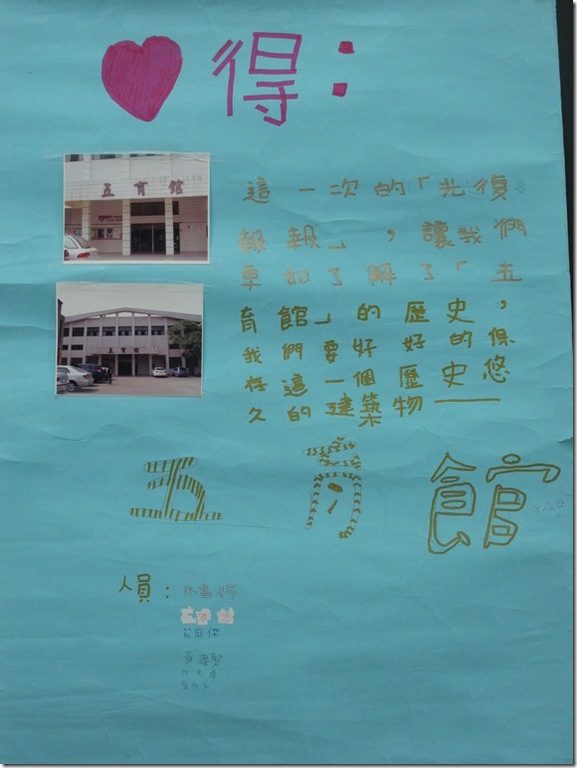 得：
五育館
這一次的「光復
報報」，讓我們
更加了解了「五
育館」的歷史，
我們要好好的保
存這一個歷史悠
久的建築物——
五育館
五育館
人員：林書婷